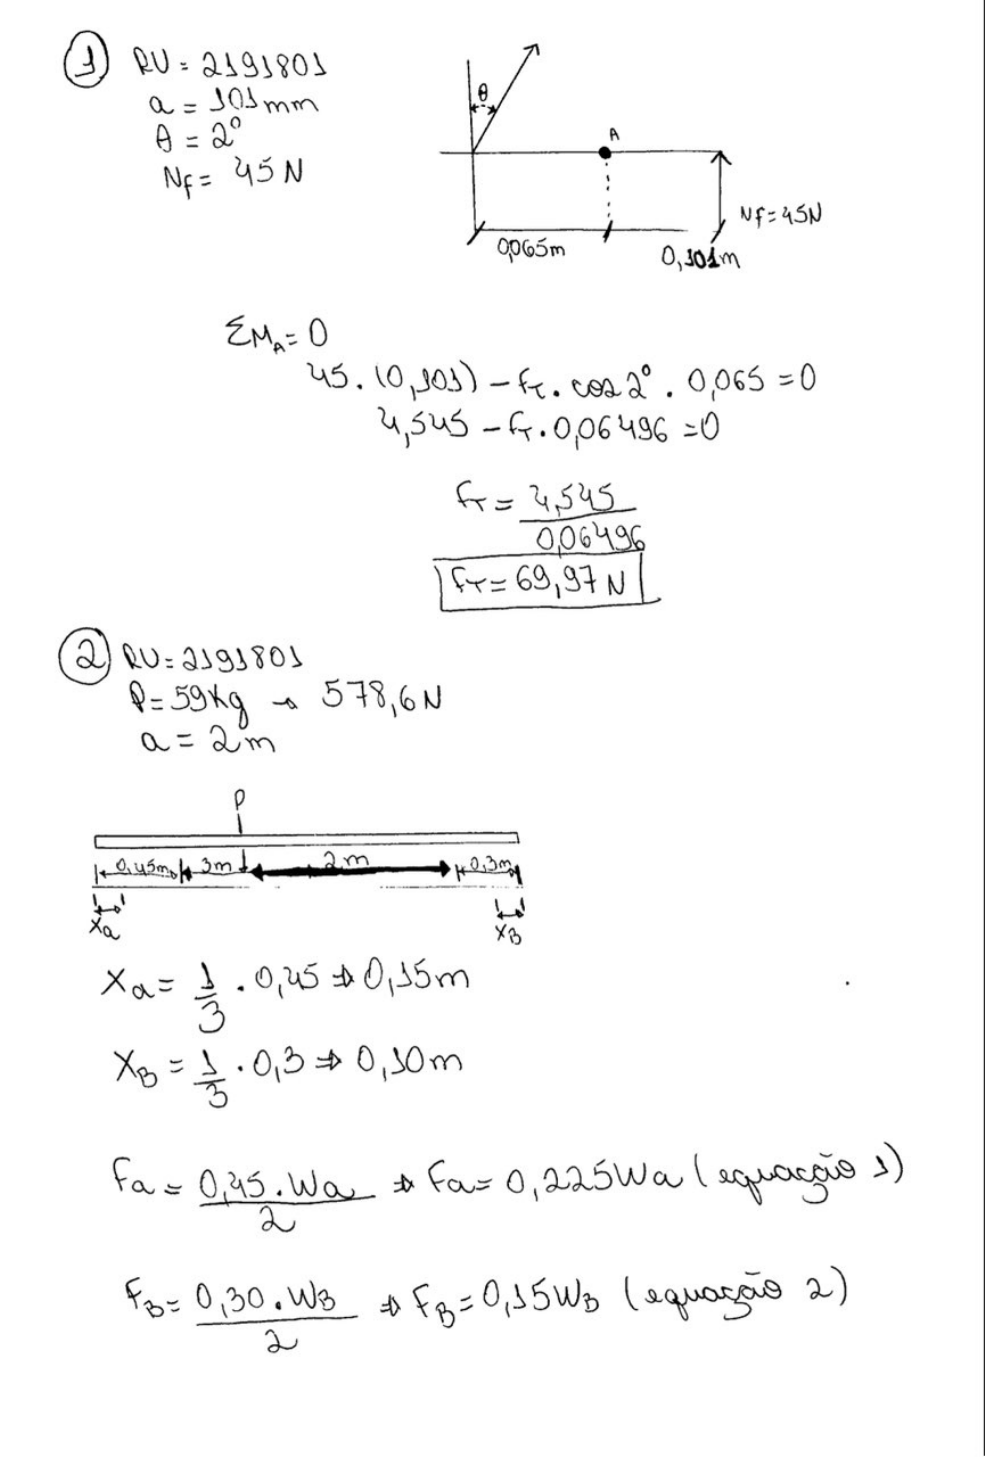 1 RU = 2191801
a = 101mm
θ = 2°
NF = 45N
θ
A
NF=45N
0,065m
0,101m
ΣMA = 0
45 . (0,101) - FT . cos 2° . 0,065 = 0
4,545 - FT . 0,06496 = 0
FT = 4,545
0,06496
FT = 69,97 N
2 RU = 2191801
P = 59Kg → 578,6N
a = 2m
P
0,45m 3m 2m 0,3m
xa xB
Xa = 1/3 . 0,45 ⇒ 0,15m
XB = 1/3 . 0,3 ⇒ 0,10m
Fa = 0,45 . Wa / 2 ⇒ Fa = 0,225Wa (equação 1)
FB = 0,30 . WB / 2 ⇒ FB = 0,15WB (equação 2)